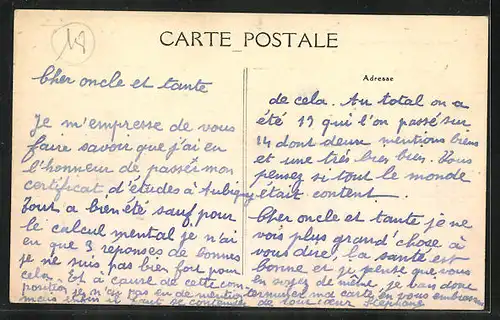 18
CARTE POSTALE
Adresse
Cher oncle et tante
Je m'empresse de vous
faire savoir que j'ai eu
l'honneur de passer mon
certificat d'études à Aubigny
Tout a bien été sauf pour
le calcul mental je n'ai
eu que 3 réponses de bonnes
je ne suis pas bien fort pour
cela. Et à cause de cette com-
position je n'ai pas eu de mention
mais enfin il faut se contenter
de cela. Au total on a
été 17 qui l'on passé sur
14 dont deux mentions biens
et une très bien bien. Vous
pensez si tout le monde
était content.
Cher oncle et tante je ne
vois plus grand' chose à
vous dire, la santé est
bonne et je pense que vous
en soyez de même, je vais donc
terminer ma carte en vous embrassant
de tout cœur Stéphane